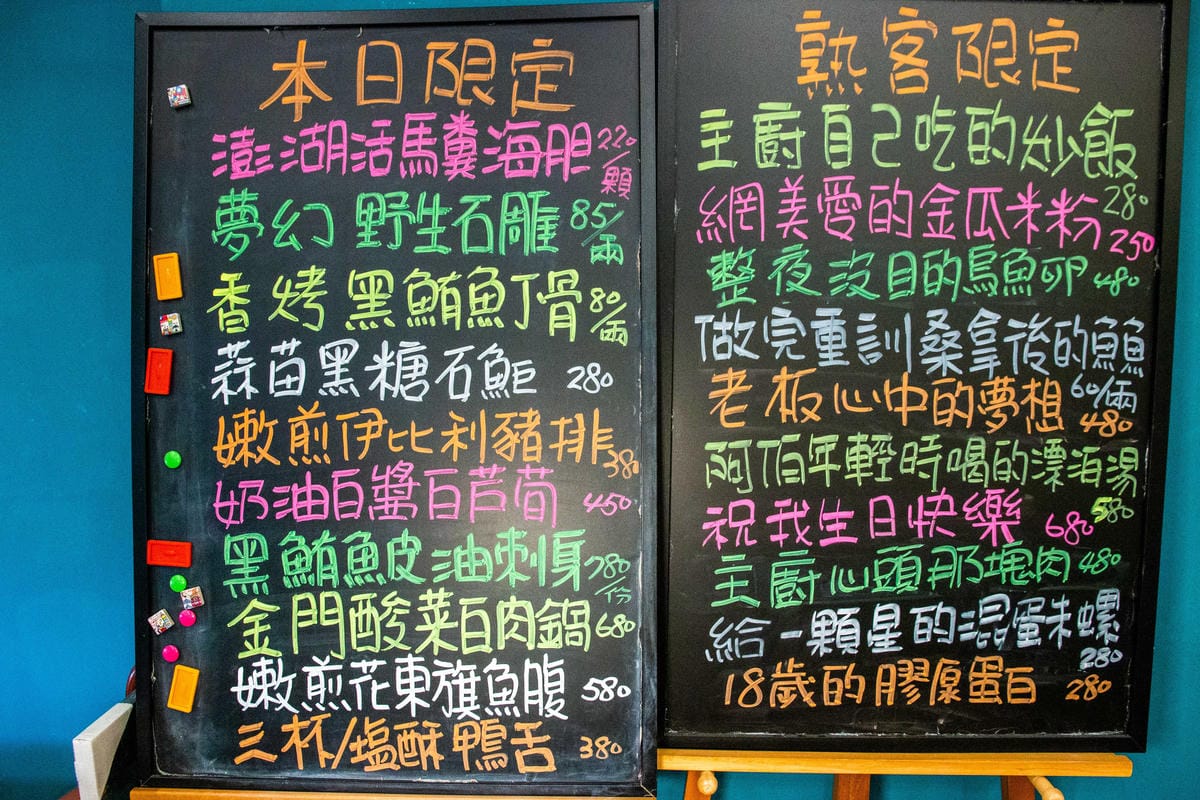 本日限定
澎湖活馬糞海胆 220/顆
夢幻 野生石雕 85/兩
香烤 黑鮪魚丁骨 80/兩
蒜苗黑糖石鮔 280
嫩煎伊比利豬排 380
奶油白醬白芦荀 450
黑鮪魚皮油刺身 780/份
金門酸菜白肉鍋 680
嫩煎花東旗魚腹 580
三杯/塩酥鴨舌 380
熟客限定
主廚自己吃的炒飯 280
網美愛的金瓜米粉 250
整夜沒目的烏魚卵 480
做完重訓桑拿後的鱼 60/兩
老板心中的夢想 480
阿伯年輕時喝的漂泊湯 580
祝我生日快樂 680
主廚心頭那塊肉 480
給一顆星的混蛋朱螺 280
18歲的膠原蛋白 280